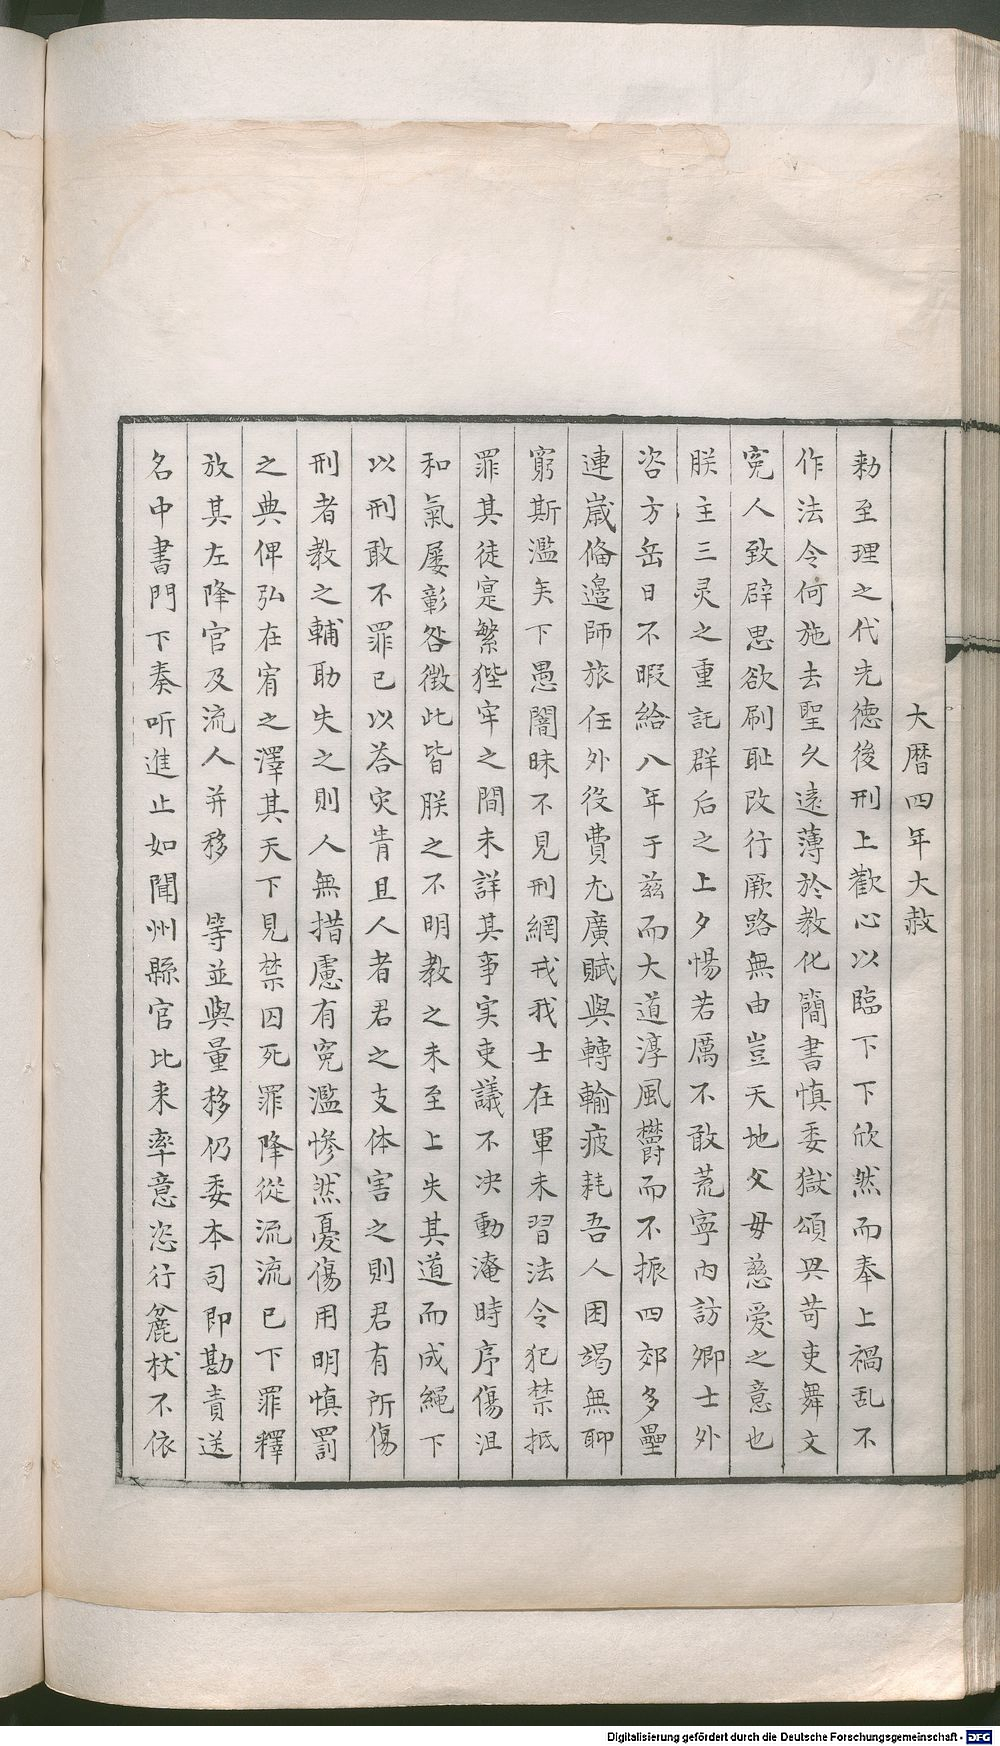 大曆四年大赦
勑至理之代先德後刑上歡心以臨下下欣然而奉上禍乱不
作法令何施去聖久遠薄於教化簡書慎委獄頌興苛吏舞文
寃人致辟思欲刷耻改行厥路無由豈天地父毋慈愛之意也
朕主三灵之重託群后之上夕惕若厲不敢荒寧內訪卿士外
咨方岳日不暇給八年于兹而大道淳風欝而不振四郊多壘
連歲俻邉師旅在外役費尤廣賦與轉輸疲耗吾人困竭無聊
窮斯濫矣下愚闇昧不見刑網戎我士在軍未習法令犯禁抵
罪其徒寔繁狴牢之間未詳其事実吏議不决動淹時序傷沮
和氣屡彰咎徵此皆朕之不明教之未至上失其道而成繩下
以刑敢不罪已以荅灾眚且人者君之支体害之則君有所傷
刑者教之輔助失之則人無措慮有寃濫惨然憂傷用明慎罰
之典俾弘在宥之澤其天下見禁囚死罪降從流流已下罪釋
放其左降官及流人并移 等並與量移仍委本司即勘責送
名中書門下奏听進止如聞州縣官比来率意恣行麄杖不依
Digitalisierung gefördert durch die Deutsche Forschungsgemeinschaft - DFG